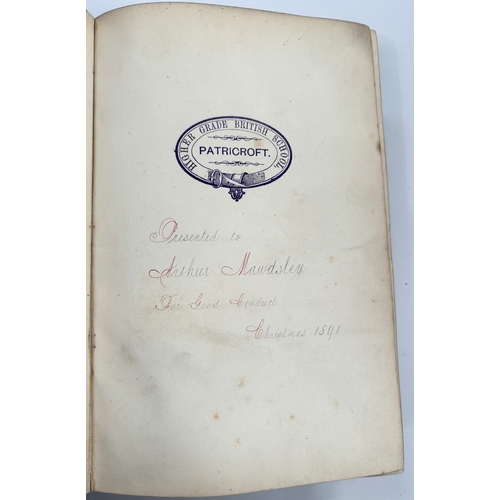 HIGHER GRADE BRITISH SCHOOL,
PATRICROFT.
Presented to
Arthur Mawdsley
For Good Conduct
Christmas 1891